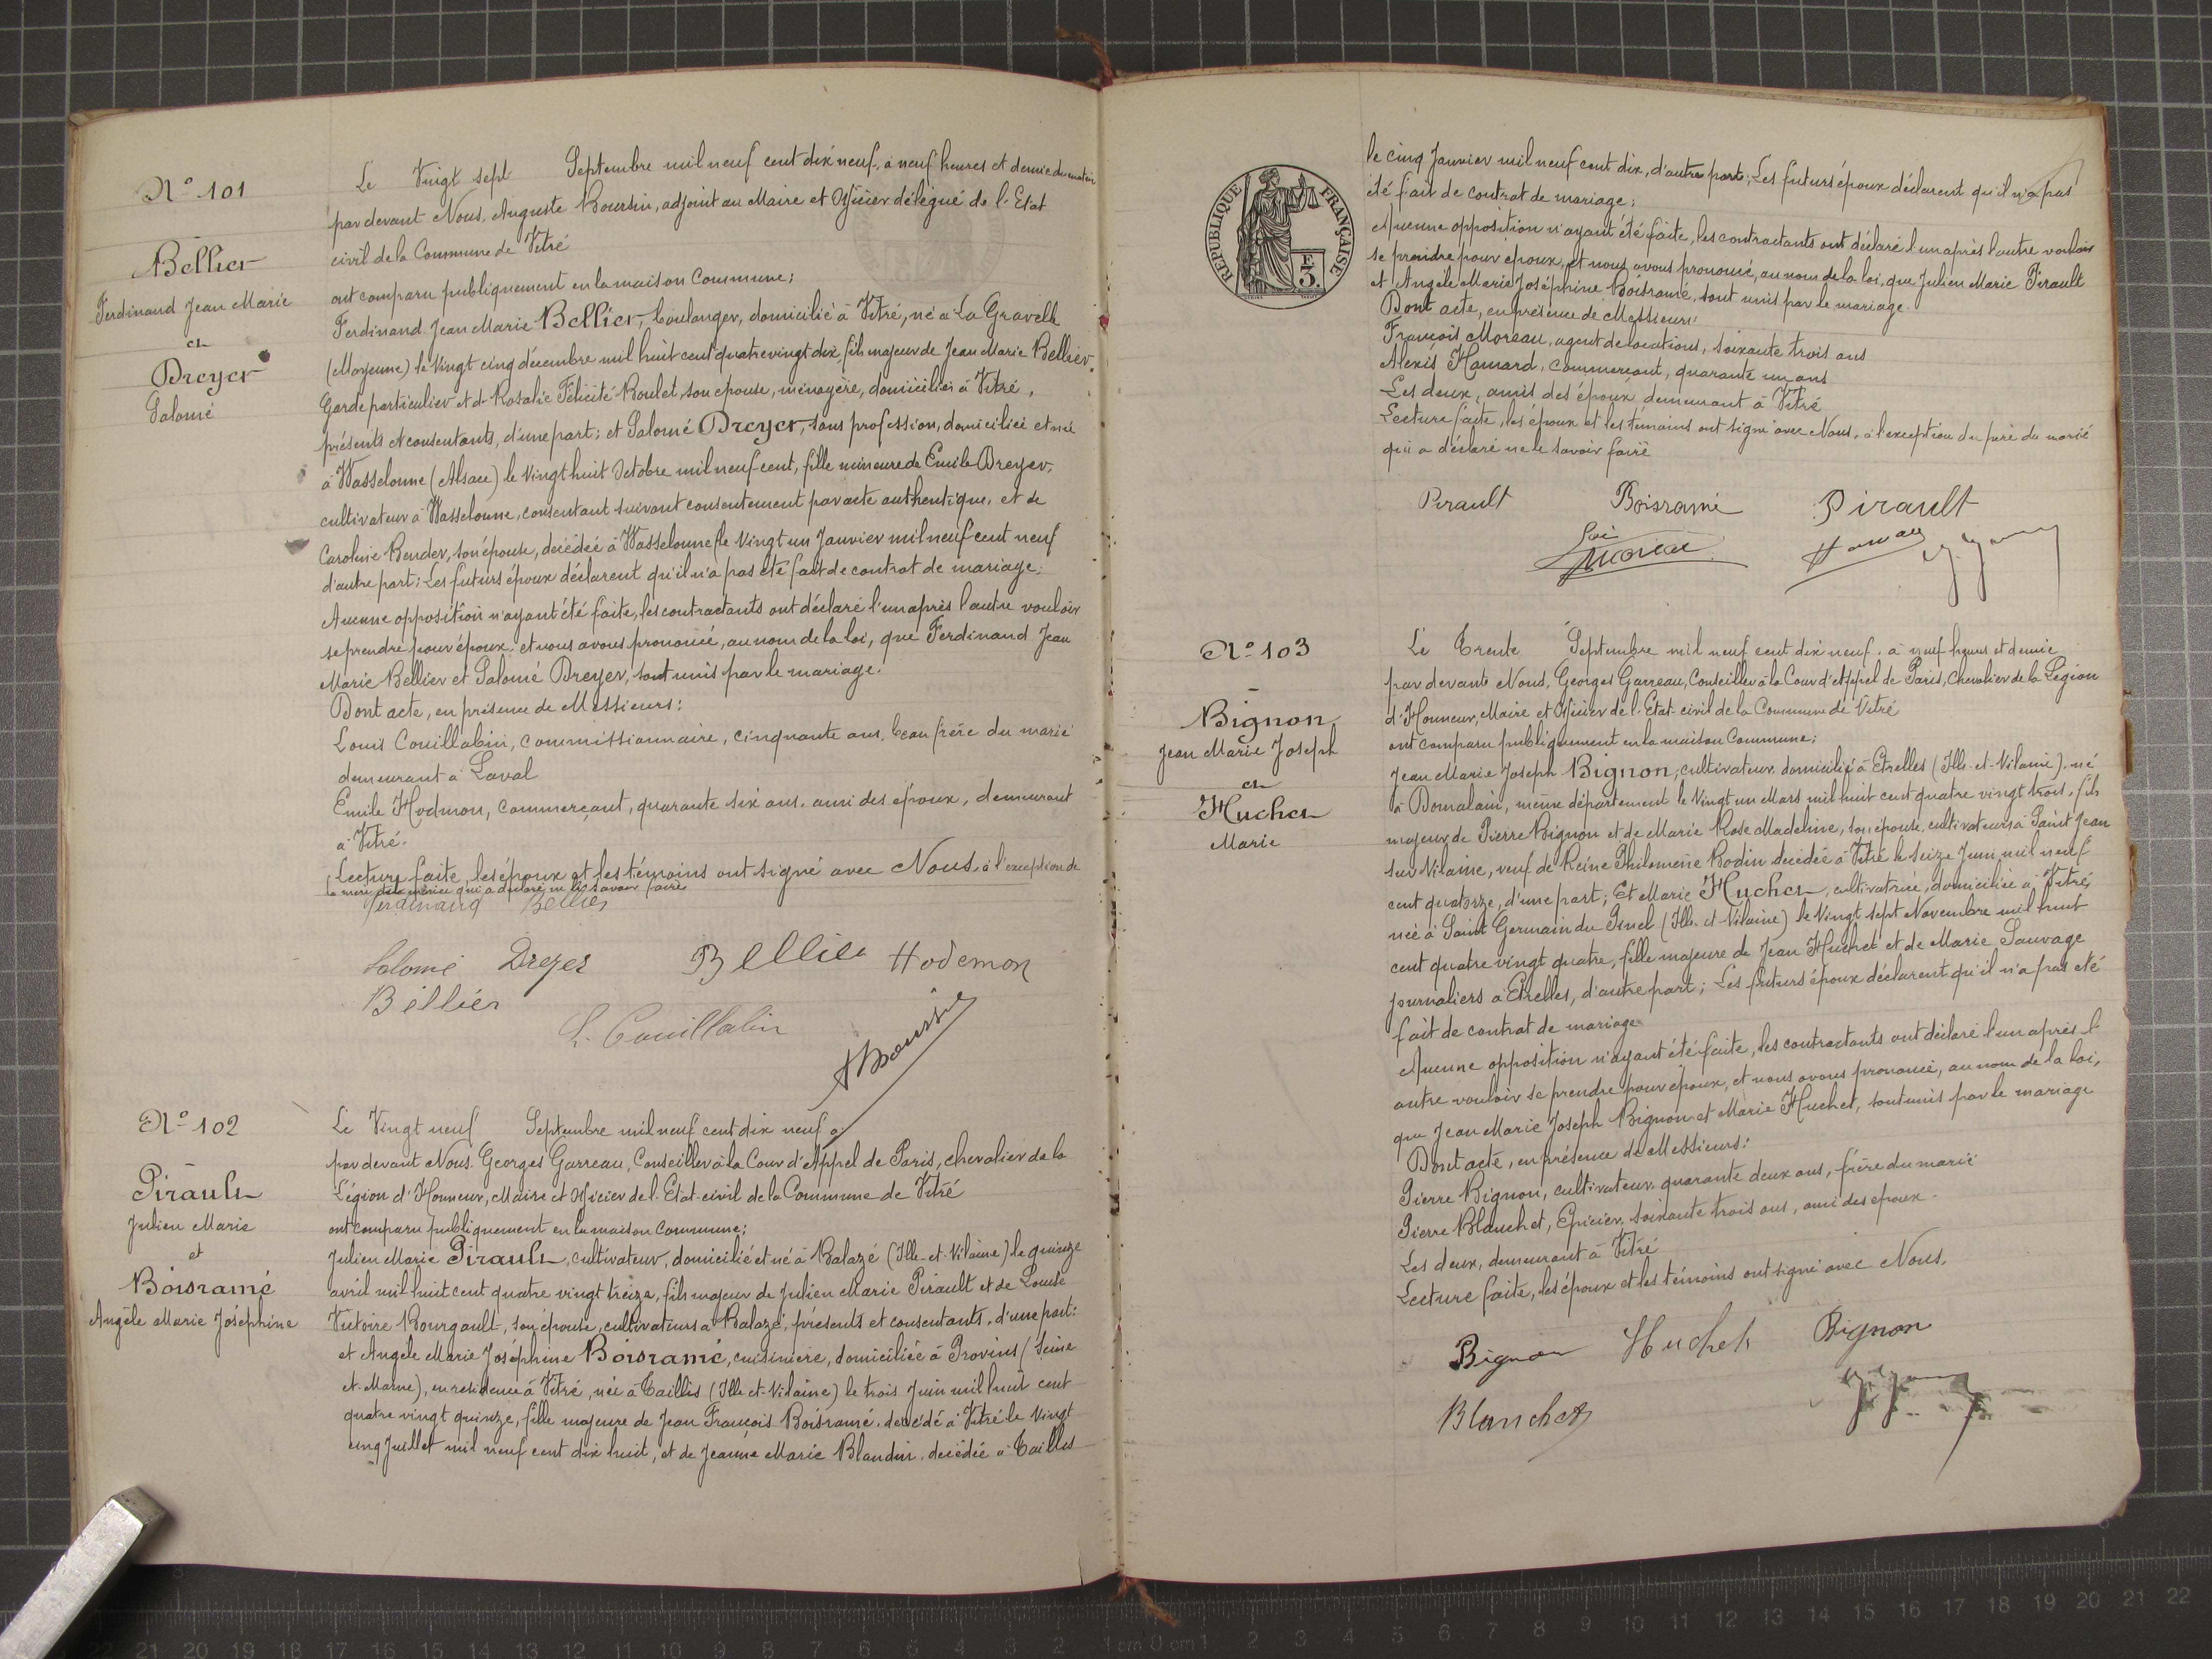 N° 101
Bellier
Ferdinand Jean Marie
et
Dreyer
Salomé
Le Vingt sept Septembre mil neuf cent dix neuf, à neuf heures et demie du matin
par devant Nous, Auguste Boursin, adjoint au Maire et Officier délégué de l'Etat
civil de la Commune de Vitré
ont comparu publiquement en la maison Commune;
Ferdinand Jean Marie Bellier, boulanger, domicilié à Vitré, né à La Gravelle
(Mayenne) le Vingt cinq décembre mil huit cent quatre vingt dix, fils majeur de Jean Marie Bellier,
Garde particulier et de Rosalie Félicité Boulet, son épouse, ménagère, domiciliés à Vitré,
présents et consentants, d'une part; et Salomé Dreyer, sans profession, domiciliée et née
à Wasselonne (Alsace) le Vingt huit Octobre mil neuf cent, fille mineure de Emile Dreyer,
cultivateur à Wasselonne, consentant suivant consentement par acte authentique, et de
Caroline Bender, son épouse, décédée à Wasselonne le Vingt un Janvier mil neuf cent neuf
d'autre part; Les futurs époux déclarent qu'il n'a pas été fait de contrat de mariage.
Aucune opposition n'ayant été faite, les contractants ont déclaré l'un après l'autre vouloir
se prendre pour époux, et nous avons prononcé, au nom de la loi, que Ferdinand Jean
Marie Bellier et Salomé Dreyer, sont unis par le mariage.
Dont acte, en présence de Messieurs:
Louis Couillabin, commissionnaire, cinquante ans, beau frère du marié
demeurant à Laval
Emile Hodmon, commerçant, quarante six ans, ami des époux, demeurant
à Vitré.
Lecture faite, les époux et les témoins ont signé avec Nous, à l'exception de
la mère du marié qui a déclaré ne le savoir faire
Ferdinand Bellier
Salomé Dreyer Bellier Hodemon
Bellier
L. Couillabin
A Boursin
N° 102
Pirault
Julien Marie
et
Boisramé
Angèle Marie Joséphine
Le Vingt neuf Septembre mil neuf cent dix neuf à
par devant Nous, Georges Garreau, Conseiller à la Cour d'Appel de Paris, chevalier de la
Légion d'Honneur, Maire et Officier de l'Etat-civil de la Commune de Vitré
ont comparu publiquement en la maison Commune;
Julien Marie Pirault, cultivateur, domicilié et né à Balazé (Ille-et-Vilaine) le quinze
avril mil huit cent quatre vingt treize, fils majeur de Julien Marie Pirault et de Louise
Victoire Bourgault, son épouse, cultivateurs à Balazé, présents et consentants, d'une part:
et Angèle Marie Joséphine Boisramé, cuisinière, domiciliée à Provins (Seine
et-Marne), en résidence à Vitré, née à Taillis (Ille-et-Vilaine) le trois Juin mil huit cent
quatre vingt quinze, fille majeure de Jean François Boisramé, décédé à Vitré le Vingt
cinq Juillet mil neuf cent dix huit, et de Jeanne Marie Blandin, décédée à Taillis
REPUBLIQUE FRANÇAISE
F
3.
le cinq Janvier mil neuf cent dix, d'autre part; Les futurs époux déclarent qu'il n'a pas
été fait de contrat de mariage;
Aucune opposition n'ayant été faite, les contractants ont déclaré l'un après l'autre vouloir
se prendre pour époux, et nous avons prononcé, au nom de la loi, que Julien Marie Pirault
et Angèle Marie Joséphine Boisramé, sont unis par le mariage.
Dont acte, en présence de Messieurs:
François Moreau, agent de locations, soixante trois ans
Alexis Hamard, commerçant, quarante un ans
Les deux, amis des époux, demeurant à Vitré
Lecture faite, les époux et les témoins ont signé avec Nous, à l'exception du père du marié
qui a déclaré ne le savoir faire
Pirault Boisramé Pirault
Moreau Hamard
N° 103
Bignon
Jean Marie Joseph
et
Huchet
Marie
Le Trente Septembre mil neuf cent dix neuf, à neuf heures et demie
par devant Nous, Georges Garreau, Conseiller à la Cour d'Appel de Paris, Chevalier de la Légion
d'Honneur, Maire et Officier de l'Etat-civil de la Commune de Vitré
ont comparu publiquement en la maison Commune;
Jean Marie Joseph Bignon, cultivateur, domicilié à Etrelles (Ille-et-Vilaine), né
à Domalain, même département le Vingt un Mars mil huit cent quatre vingt trois, fils
majeur de Pierre Bignon et de Marie Rose Madeline, son épouse, cultivateurs à Saint Jean
sur Vilaine, veuf de Reine Philomène Rodin décédée à Vitré le seize Juin mil neuf
cent quatorze, d'une part; Et Marie Huchet, cultivatrice, domiciliée à Vitré,
née à Saint Germain du Pinel (Ille-et-Vilaine) le Vingt sept Novembre mil huit
cent quatre vingt quatre, fille majeure de Jean Huchet et de Marie Sauvage
journaliers à Etrelles, d'autre part; Les futurs époux déclarent qu'il n'a pas été
fait de contrat de mariage.
Aucune opposition n'ayant été faite, les contractants ont déclaré l'un après l'
autre vouloir se prendre pour époux, et nous avons prononcé, au nom de la loi,
que Jean Marie Joseph Bignon et Marie Huchet, sont unis par le mariage
Dont acte, en présence de Messieurs:
Pierre Bignon, cultivateur, quarante deux ans, frère du marié
Pierre Blanchet, Epicier, soixante trois ans, ami des époux.
Les deux, demeurant à Vitré
Lecture faite, les époux et les témoins ont signé avec Nous.
Bignon Huchet Bignon
Blanchet